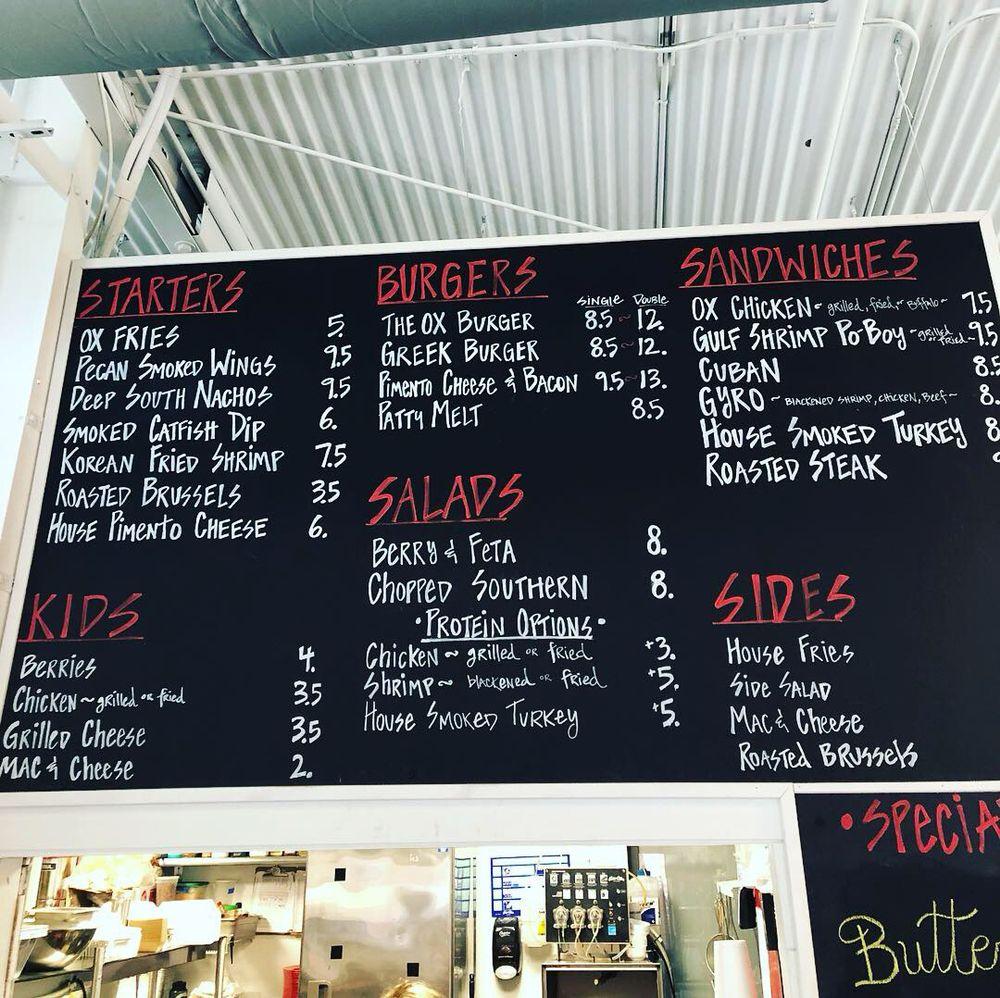 STARTERS
OX FRIES 5.
PECAN SMOKED WINGS 9.5
DEEP SOUTH NACHOS 9.5
SMOKED CATFISH DIP 6.
KOREAN FRIED SHRIMP 7.5
ROASTED BRUSSELS 3.5
HOUSE PIMENTO CHEESE 6.
KIDS
BERRIES 4.
CHICKEN ~ grilled or fried 3.5
GRILLED CHEESE 3.5
MAC & CHEESE 2.
BURGERS
SINGLE DOUBLE
THE OX BURGER 8.5 ~ 12.
GREEK BURGER 8.5 ~ 12.
PIMENTO CHEESE & BACON 9.5 ~ 13.
PATTY MELT 8.5
SALADS
BERRY & FETA 8.
CHOPPED SOUTHERN 8.
• PROTEIN OPTIONS •
CHICKEN ~ grilled or fried +3.
SHRIMP ~ blackened or fried +5.
HOUSE SMOKED TURKEY +5.
SANDWICHES
OX CHICKEN ~ grilled, fried, or Buffalo ~ 7.5
GULF SHRIMP PO BOY ~ grilled or fried ~ 9.5
CUBAN 8.5
GYRO ~ BLACKENED SHRIMP, CHICKEN, BEEF ~ 8.
HOUSE SMOKED TURKEY 8
ROASTED STEAK
SIDES
HOUSE FRIES
SIDE SALAD
MAC & CHEESE
ROASTED BRUSSELS
• SPECIA
Butte